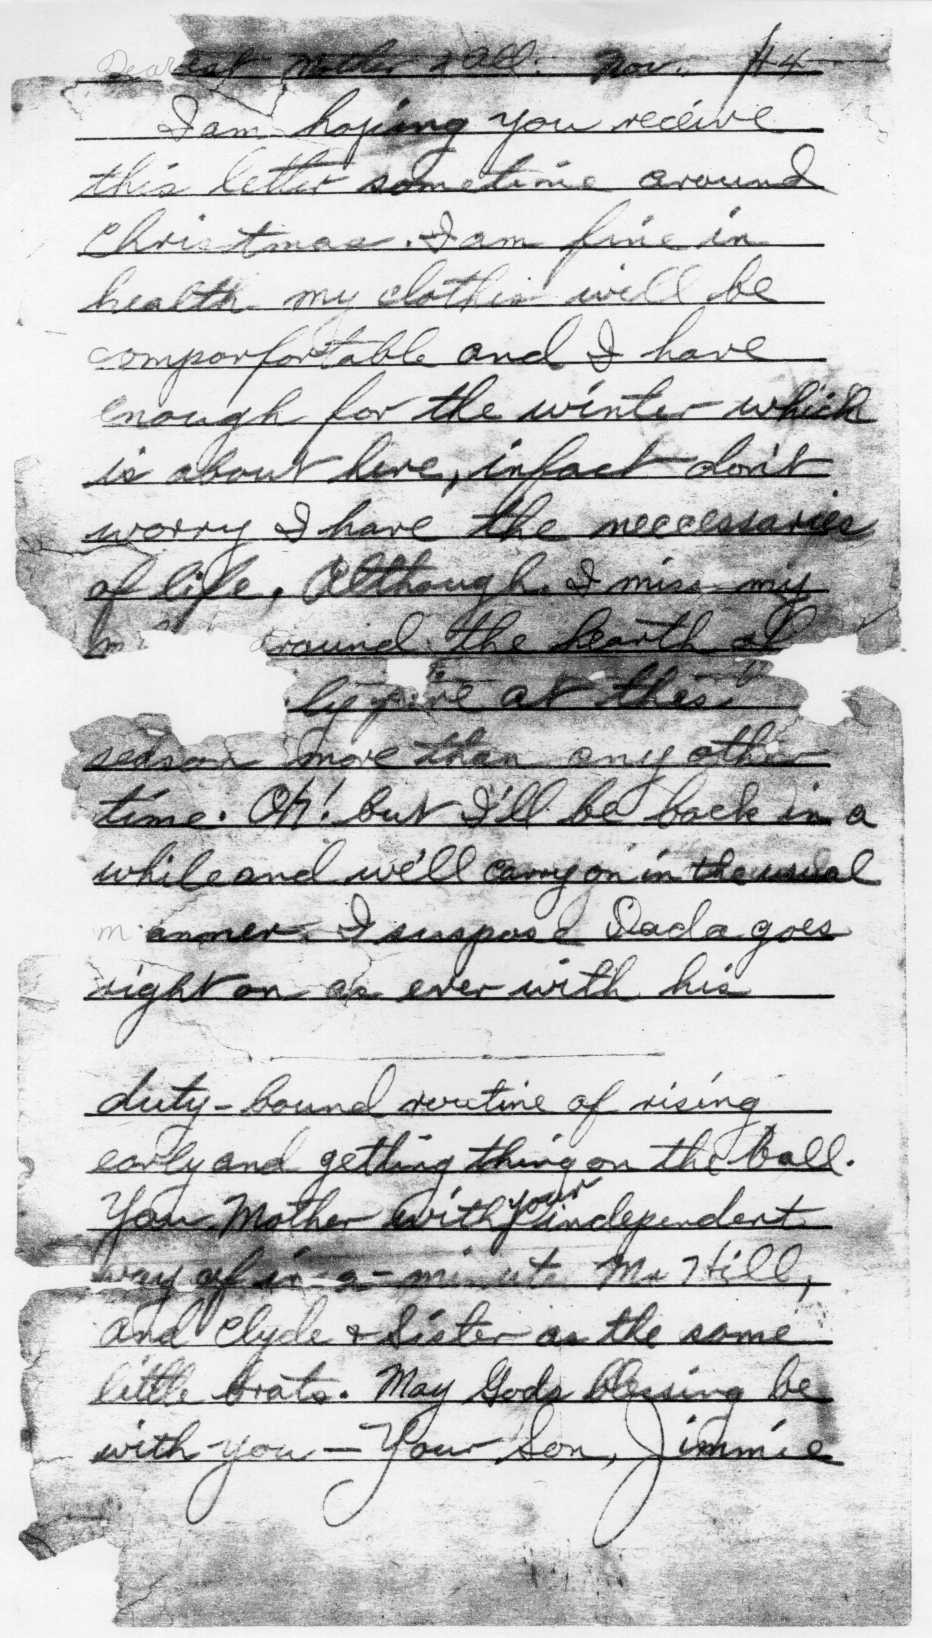 Dearest Mother & All: Nov., 44
I am hoping you receive
this letter sometime around
Christmas. I am fine in
health my clothes will be
comporfortable and I have
enough for the winter which
is about here, infact don't
worry I have the neccessaries
of life, Although I miss my
around the hearth
fire at this
season more than any other
time. Oh! but I'll be back in a
while and we'll carry on in the usual
manner. I suspose Dada goes
right on as ever with his
duty-bound routine of rising
early and getting thing on the ball.
You Mother with your independent
way of in-a-minute Mr Hill,
and Clyde & Sister as the same
little brats. May Gods blessing be
with you — Your Son, Jimmie